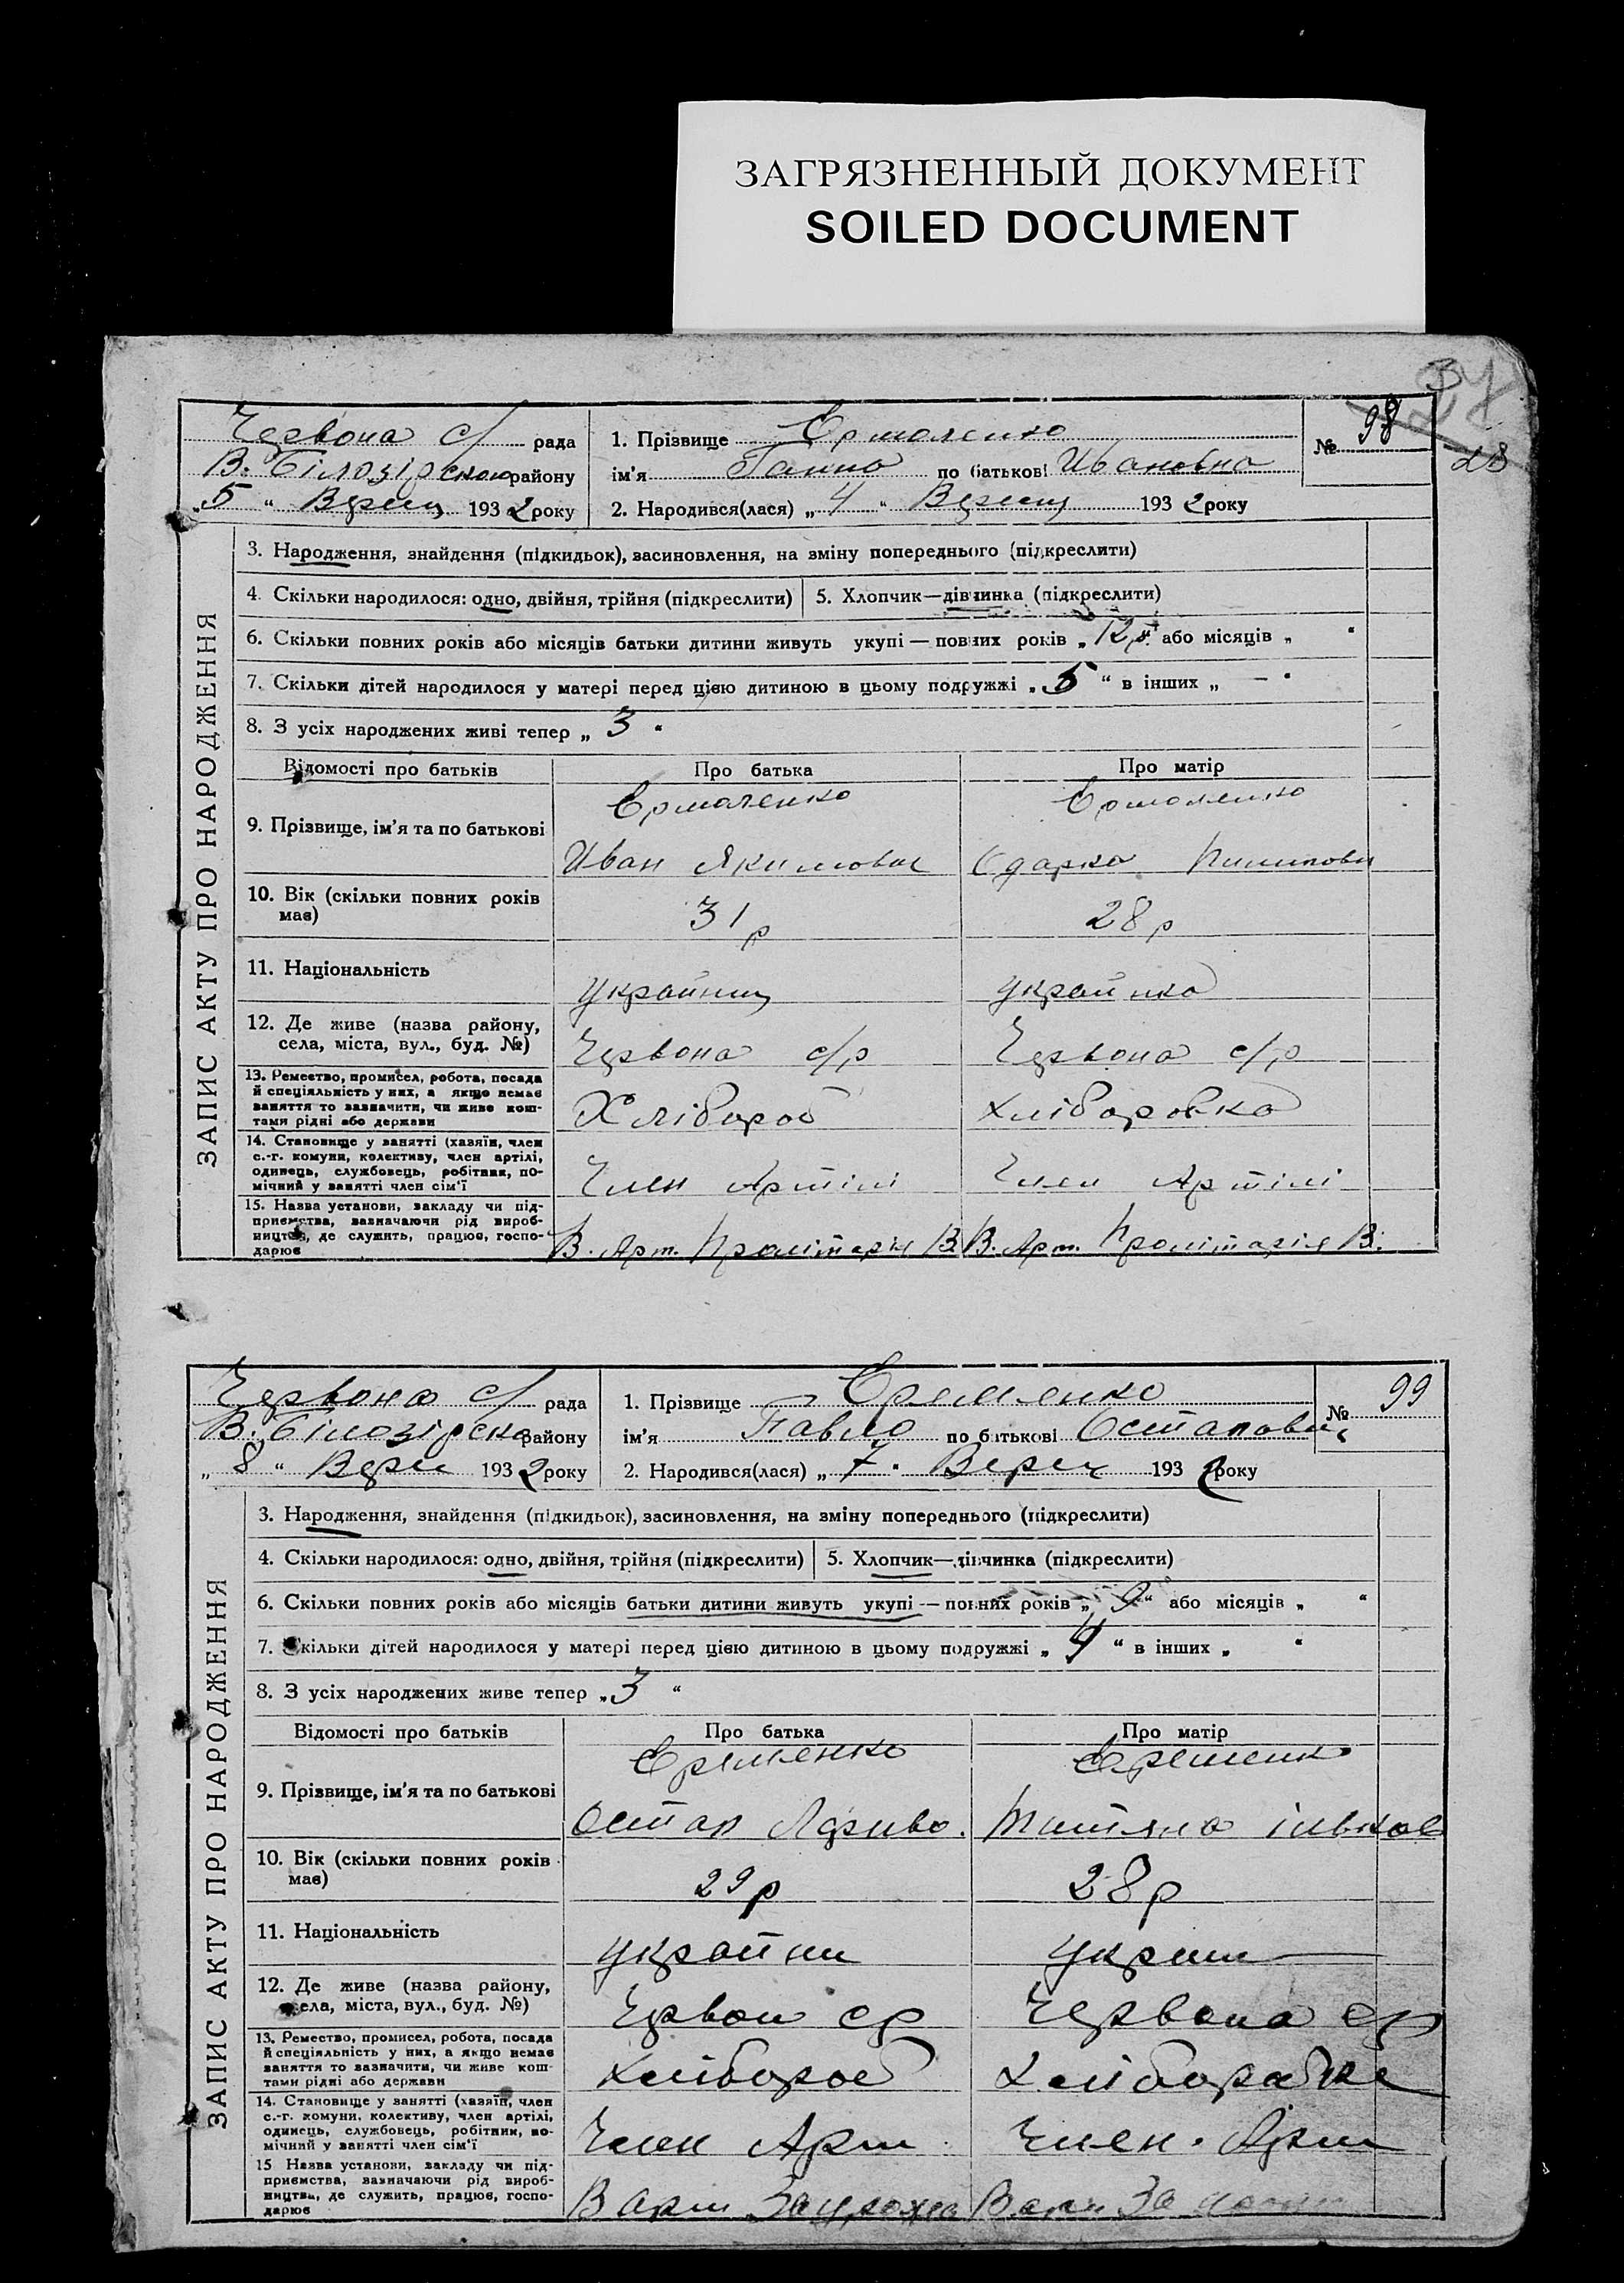 ЗАГРЯЗНЕННЫЙ ДОКУМЕНТ
SOILED DOCUMENT
28
Червона с/ рада
В. Білозірского району
„5“ Верец 1932 року
1. Прізвище Ермоленко
ім'я Ганна по батькові Ивановна
2. Народився(лася) „4“ Верец 1932 року
№ 98
ЗАПИС АКТУ ПРО НАРОДЖЕННЯ
3. Народження, знайдення (підкидьок), засиновлення, на зміну попереднього (підкреслити)
4. Скільки народилося: одно, двійня, трійня (підкреслити) 5. Хлопчик—дівчинка (підкреслити)
6. Скільки повних років або місяців батьки дитини живуть укупі — повних років „12“ або місяців „ “
7. Скільки дітей народилося у матері перед цією дитиною в цьому подружжі „5“ в інших „ — “
8. З усіх народжених живі тепер „3“
Відомості про батьків Про батька Про матір
9. Прізвище, ім'я та по батькові
Ермоленко Ермоленко
Иван Якимович Одарка
10. Вік (скільки повних років має)
31р 28р
11. Національність
українец українка
12. Де живе (назва району, села, міста, вул., буд. №)
Червона с/р Червона с/р
13. Ремество, промисел, робота, посада
й спеціяльність у них, а якщо немає
заняття то зазначити, чи живе кош-
тами рідні або держави
Хлібороб Хліборобка
14. Становище у занятті (хазяїн, член
с.-г. комуни, колективу, член артілі,
одинець, службовець, робітник, по-
мічний у занятті член сім'ї
Член Артілі Член Артілі
15. Назва установи, закладу чи під-
приємства, зазначаючи рід вироб-
ництва, де служить, працює, госпо-
дарює
В. Арт. Пролітарія В В. Арт. Пролітарія В.
Червона с/ рада
В. Білозірско району
„8“ Верец 1932 року
1. Прізвище Еременко
ім'я Павло по батькові Остапович
2. Народився(лася) „7“ Верец 1932 року
№ 99
ЗАПИС АКТУ ПРО НАРОДЖЕННЯ
3. Народження, знайдення (підкидьок), засиновлення, на зміну попереднього (підкреслити)
4. Скільки народилося: одно, двійня, трійня (підкреслити) 5. Хлопчик—дівчинка (підкреслити)
6. Скільки повних років або місяців батьки дитини живуть укупі — повних років „9“ або місяців „ “
7. Скільки дітей народилося у матері перед цією дитиною в цьому подружжі „4“ в інших „ “
8. З усіх народжених живе тепер „3“
Відомості про батьків Про батька Про матір
9. Прізвище, ім'я та по батькові
Еременко Еременк
Остап Титяна
10. Вік (скільки повних років має)
29р 28р
11. Національність
україни
12. Де живе (назва району, села, міста, вул., буд. №)
Червон ср Червона ср
13. Ремество, промисел, робота, посада
й спеціяльність у них, а якщо немає
заняття то зазначити, чи живе кош-
тами рідні або держави
Хлібороб Хліборобка
14. Становище у занятті (хазяїн, член
с.-г. комуни, колективу, член артілі,
одинець, службовець, робітник, по-
мічний у занятті член сім'ї
Член Арт Член. Арт
15 Назва установи, закладу чи під-
приємства, зазначаючи рід вироб-
ництва, де служить, працює, госпо-
дарює
В арт За урожа В арт За